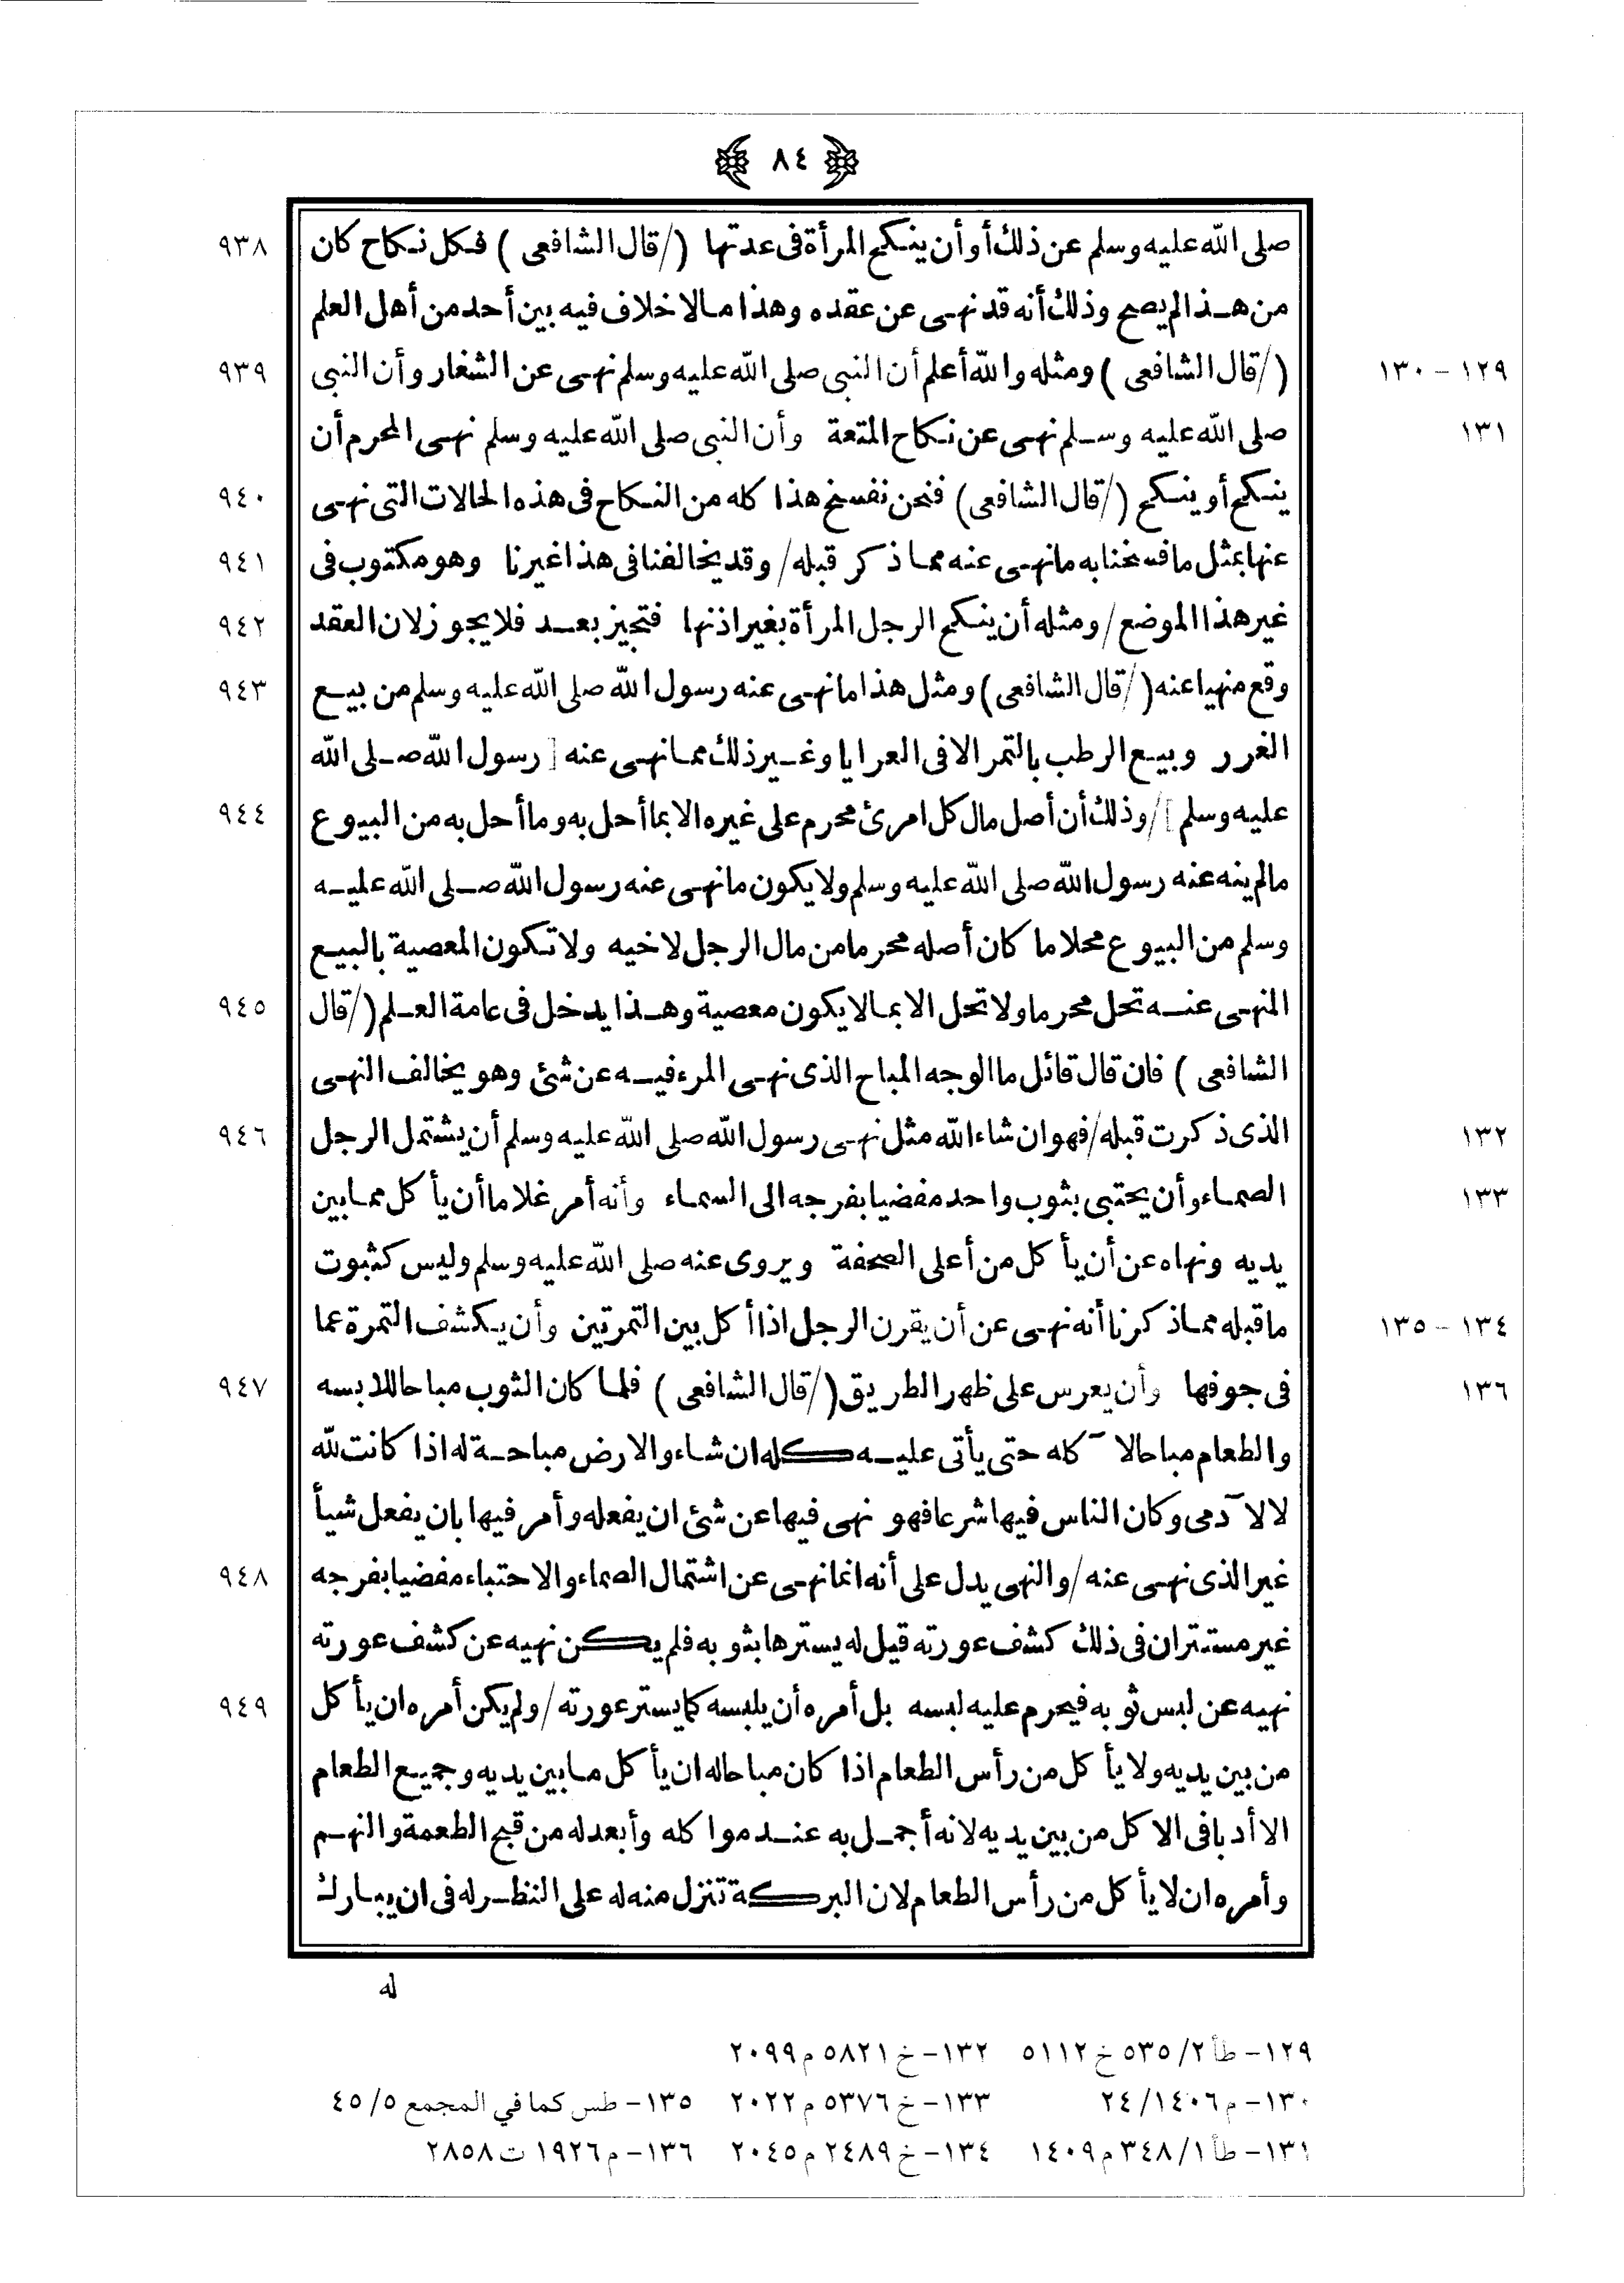 ٨٤
صلى الله عليه وسلم عن ذلك أو أن ينكح المرأة فى عدتها (/ قال الشافعى ) فكل نكاح كان ٩٣٨
من هذا لم يصح وذلك أنه قد نهى عن عقده وهذا ما لا خلاف فيه بين أحد من أهل العلم
١٢٩ – ١٣٠ (/ قال الشافعى ) ومثله والله أعلم أن النبى صلى الله عليه وسلم نهى عن الشغار وأن النبى ٩٣٩
١٣١ صلى الله عليه وسلم نهى عن نكاح المتعة وأن النبى صلى الله عليه وسلم نهى المحرم أن
ينكح أو ينكح (/ قال الشافعى ) فنحن نفسخ هذا كله من النكاح فى هذه الحالات التى نهى ٩٤٠
عنها بمثل ما فسخنا به ما نهى عنه مما ذكر قبله / وقد يخالفنا فى هذا غيرنا وهو مكتوب فى ٩٤١
غير هذا الموضع / ومثله أن ينكح الرجل المرأة بغير اذنها فتجيز بعد فلا يجوز لان العقد ٩٤٢
وقع منهيا عنه (/ قال الشافعى ) ومثل هذا ما نهى عنه رسول الله صلى الله عليه وسلم من بيع ٩٤٣
الغرر وبيع الرطب بالتمر الا فى العرايا وغير ذلك مما نهى عنه [ رسول الله صلى الله
عليه وسلم ] / وذلك أن أصل مال كل امرئ محرم على غيره الا بما أحل به وما أحل به من البيوع ٩٤٤
ما لم ينه عنه رسول الله صلى الله عليه وسلم ولا يكون ما نهى عنه رسول الله صلى الله عليه
وسلم من البيوع محلا ما كان أصله محرما من مال الرجل لاخيه ولا تكون المعصية بالبيع
المنهى عنه تحل محرما ولا تحل الا بما لا يكون معصية وهذا يدخل فى عامة العلم (/ قال ٩٤٥
الشافعى ) فان قال قائل ما الوجه المباح الذى نهى المرء فيه عن شئ وهو يخالف النهى
١٣٢ الذى ذكرت قبله / فهو ان شاء الله مثل نهى رسول الله صلى الله عليه وسلم أن يشتمل الرجل ٩٤٦
١٣٣ الصماء وأن يحتبى بثوب واحد مفضيا بفرجه الى السماء وأنه أمر غلاما أن يأكل مما بين
يديه ونهاه عن أن يأكل من أعلى الصحفة ويروى عنه صلى الله عليه وسلم وليس كثبوت
١٣٤ – ١٣٥ ما قبله مما ذكرنا أنه نهى عن أن يقرن الرجل اذا أكل بين التمرتين وأن يكشف التمرة عما
١٣٦ فى جوفها وأن يعرس على ظهر الطريق (/ قال الشافعى ) فلما كان الثوب مباحا للابسه ٩٤٧
والطعام مباحا لآكله حتى يأتى عليه كله ان شاء والارض مباحة له اذا كانت لله
لا لآدمى وكان الناس فيها شرعا فهو نهى فيها عن شئ ان يفعله وأمر فيها بان يفعل شيأ
غير الذى نهى عنه / والنهى يدل على أنه انما نهى عن اشتمال الصماء والاحتباء مفضيا بفرجه ٩٤٨
غير مستتر ان فى ذلك كشف عورته قيل له يسترها بثوبه فلم يكن نهيه عن كشف عورته
نهيه عن لبس ثوبه فيحرم عليه لبسه بل أمره أن يلبسه كما يستر عورته / ولم يكن أمره ان يأكل ٩٤٩
من بين يديه ولا يأكل من رأس الطعام اذا كان مباحا له ان يأكل ما بين يديه وجميع الطعام
الا أدبا فى الاكل من بين يديه لانه أجمل به عند مواكله وأبعد له من قبح الطعمة والنهم
وأمره ان لا يأكل من رأس الطعام لان البركة تنزل منه له على النظر له فى ان يبارك
له
١٢٩– طأ ٢/ ٥٣٥ خ ٥١١٢ ١٣٢– خ ٥٨٢١ م ٢٠٩٩
١٣٠– م ١٤٠٦/ ٢٤ ١٣٣– خ ٥٣٧٦ م ٢٠٢٢ ١٣٥– طس كما في المجمع ٥/ ٤٥
١٣١– طأ ١/ ٣٤٨ م ١٤٠٩ ١٣٤– خ ٢٤٨٩ م ٢٠٤٥ ١٣٦– م ١٩٢٦ ت ٢٨٥٨